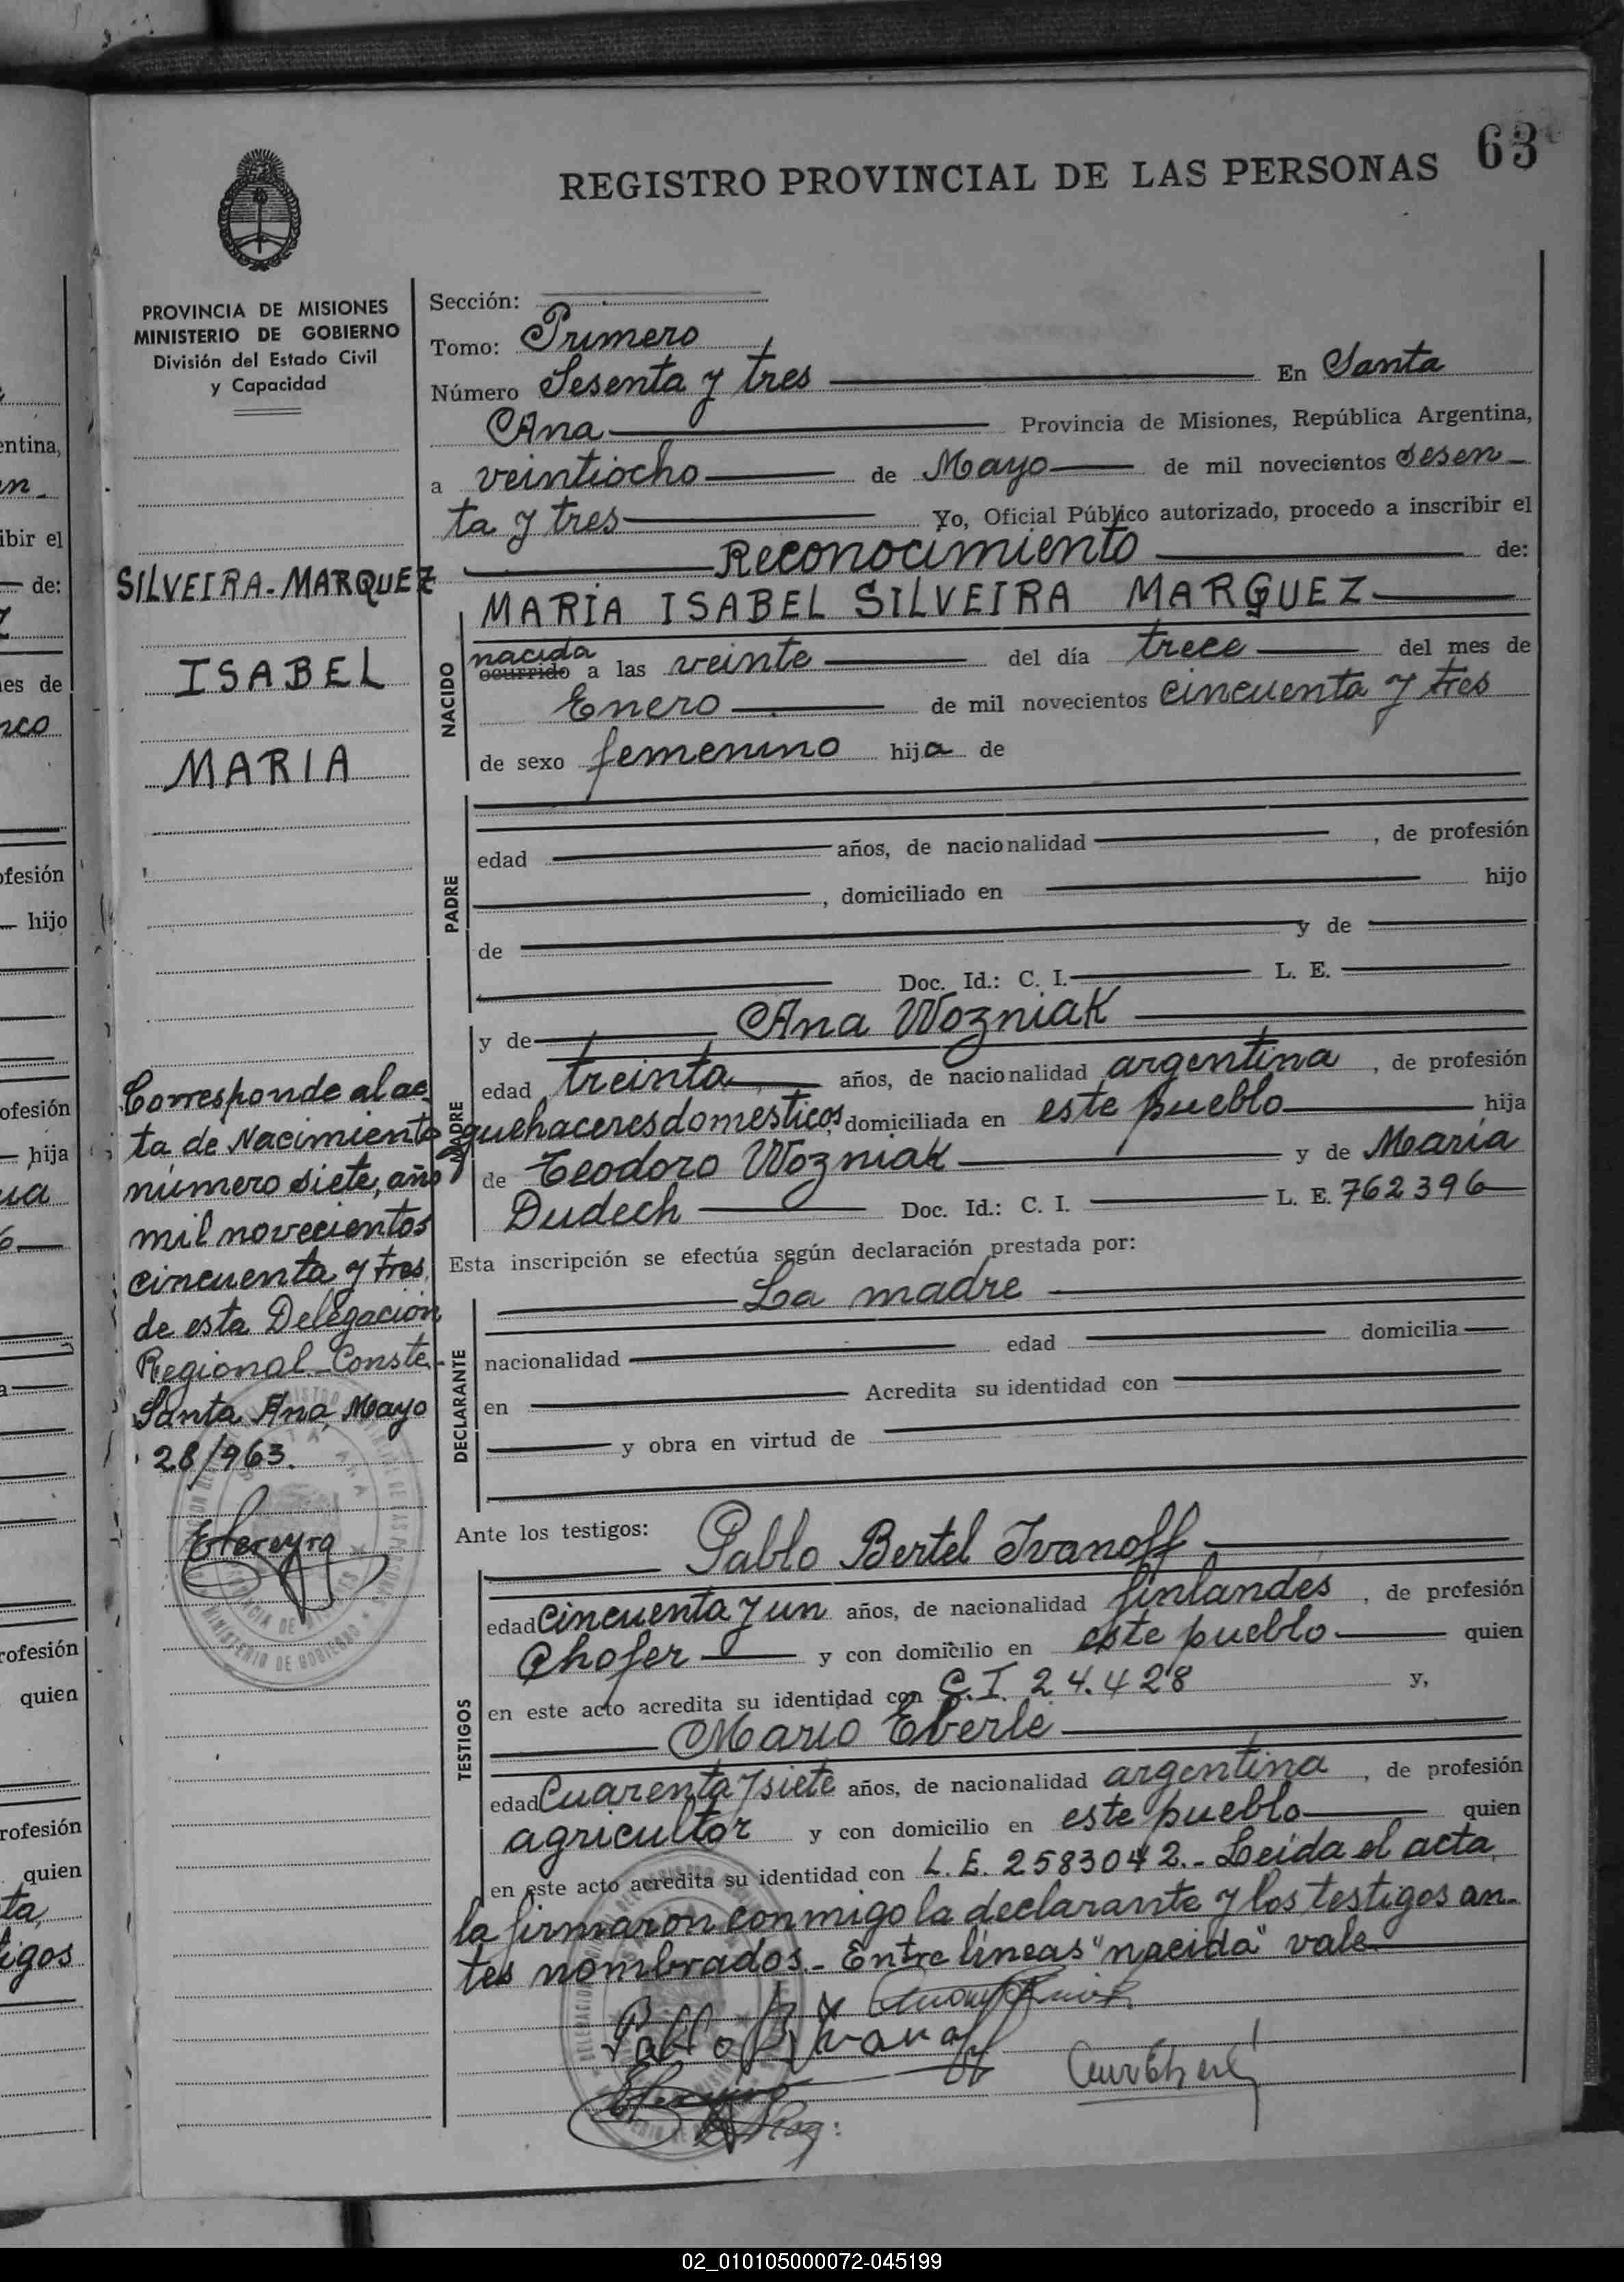 63
REGISTRO PROVINCIAL DE LAS PERSONAS
PROVINCIA DE MISIONES
MINISTERIO DE GOBIERNO
División del Estado Civil
y Capacidad
SILVEIRA-MARQUEZ
ISABEL
MARIA
Corresponde al ac-
ta de Nacimiento
número siete, año
mil novecientos
cincuenta y tres,
de esta Delegación
Regional.-Conste.-
Santa Ana, Mayo
28/963.
Sección:
Tomo: Primero
Número Sesenta y tres En Santa
Ana Provincia de Misiones, República Argentina,
a veintiocho de Mayo de mil novecientos sesen-
ta y tres Yo, Oficial Público autorizado, procedo a inscribir el
Reconocimiento de:
MARIA ISABEL SILVEIRA MARQUEZ
NACIDO
nacida
ocurrido a las veinte del día trece del mes de
Enero de mil novecientos cincuenta y tres
de sexo femenino hija de
PADRE
edad años, de nacionalidad , de profesión
, domiciliado en hijo
de y de
Doc. Id.: C. I. L. E.
MADRE
y de Ana Wozniak
edad treinta años, de nacionalidad argentina , de profesión
quehaceres domesticos, domiciliada en este pueblo hija
de Teodoro Wozniak y de Maria
Dudech Doc. Id.: C. I. L. E. 762396
Esta inscripción se efectúa según declaración prestada por:
DECLARANTE
La madre
nacionalidad edad domicilia
en Acredita su identidad con
y obra en virtud de
Ante los testigos: Pablo Bertel Ivanoff
TESTIGOS
edad cincuenta y un años, de nacionalidad finlandés , de profesión
Chofer y con domicilio en este pueblo quien
en este acto acredita su identidad con C.I. 24.428 y,
Mario Eberle
edad Cuarenta y siete años, de nacionalidad argentina , de profesión
agricultor y con domicilio en este pueblo quien
en este acto acredita su identidad con L.E. 2583042.- Leida el acta,
la firmaron conmigo la declarante y los testigos an-
tes nombrados.- Entre lineas "nacida" vale
Pablo B. Ivanoff
02_010105000072-045199